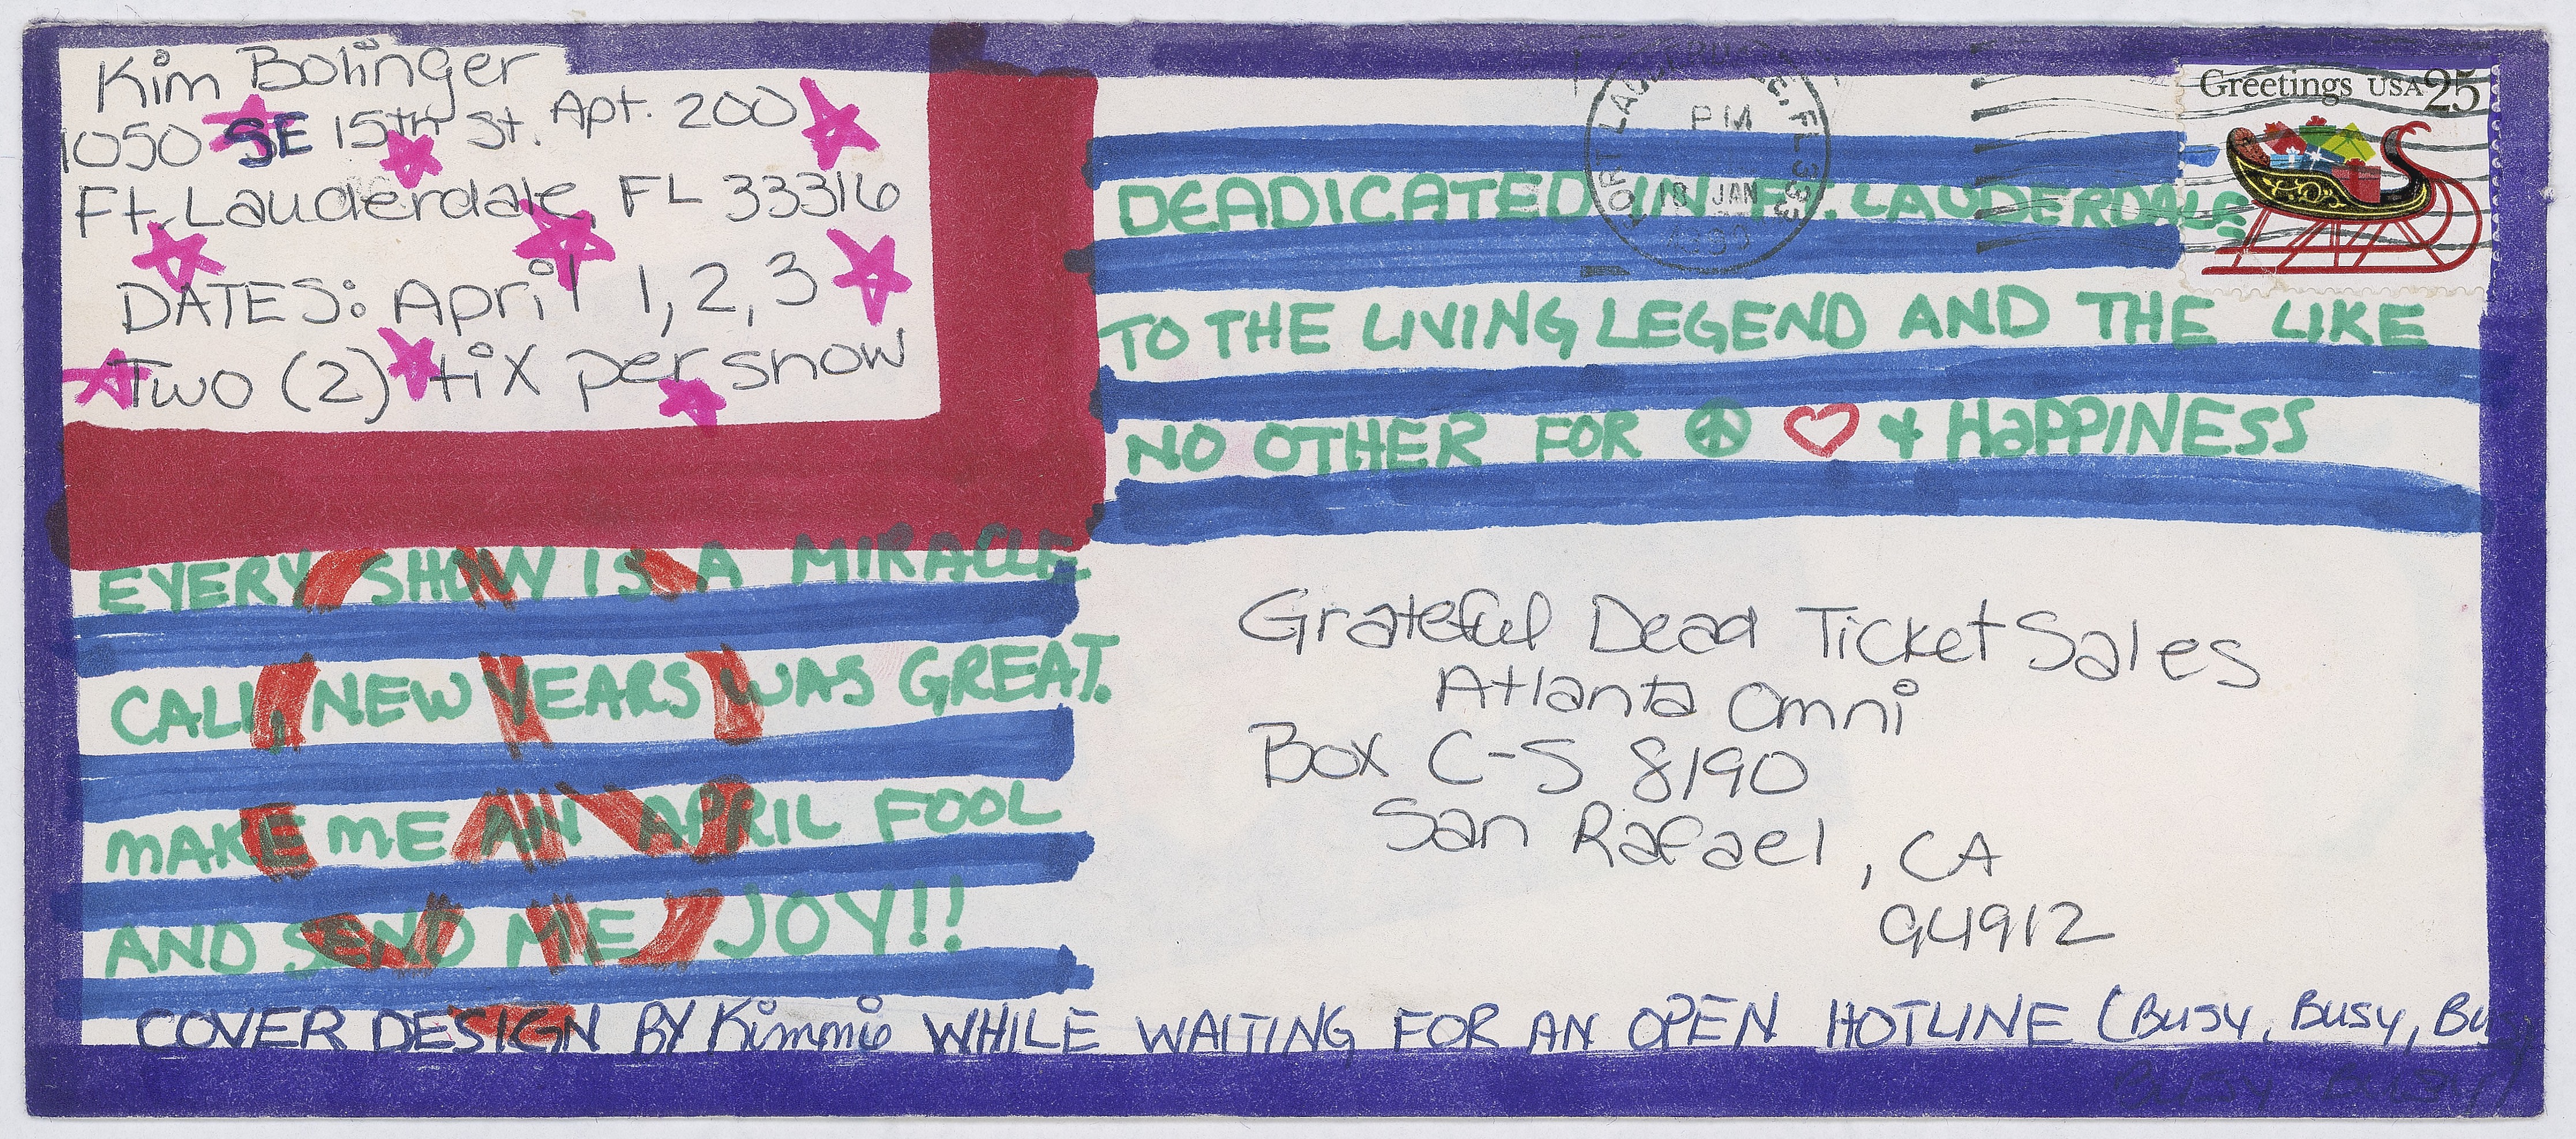 Kim Bolinger
1050 SE 15th St. Apt. 200
Ft. Lauderdale, FL 33316
DATES: April 1, 2, 3
Two (2) tix per show
PM
18 JAN
Greetings USA 25
DEADICATED IN FT. LAUDERDALE
TO THE LIVING LEGEND AND THE LIKE
NO OTHER FOR ☮ ♡ & HaPPINESS
EVERY SHOW IS A MIRACLE
CALL, NEW YEARS WAS GREAT.
MAKE ME AN APRIL FOOL
AND SEND ME JOY!!
Grateful Dead Ticket Sales
Atlanta Omni
Box C-S 8190
San Rafael, CA
94912
COVER DESIGN BY Kimmie WHILE WAITING FOR AN OPEN HOTLINE (Busy, Busy, Busy
Busy Busy)